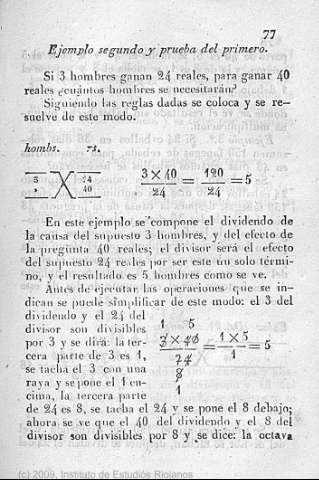 77
Ejemplo segundo y prueba del primero.
Si 3 hombres ganan 24 reales, para ganar 40
reales ¿cuántos hombres se necesitarán?
Siguiendo las reglas dadas se coloca y se re-
suelve de este modo.
hombs. rs.
3 24
, 40
3 × 40 / 24 = 120 / 24 = 5
En este ejemplo se compone el dividendo de
la causa del supuesto 3 hombres, y del efecto de
la pregunta 40 reales; el divisor será el efecto
del supuesto 24 reales por ser este un solo térmi-
no, y el resultado es 5 hombres como se ve.
Antes de ejecutar las operaciones que se in-
dican se puede simplificar de este modo: el 3 del
dividendo y el 24 del
divisor son divisibles
por 3 y se dirá: la ter-
cera parte de 3 es 1,
se tacha el 3 con una
raya y se pone el 1 en-
cima, la tercera parte
1 5
3 × 40 / 24 = 1 × 5 / 1 = 5
8
1
de 24 es 8, se tacha el 24 y se pone el 8 debajo;
ahora se ve que el 40 del dividendo y el 8 del
divisor son divisibles por 8 y se dice: la octava
(c) 2009, Instituto de Estudios Riojanos